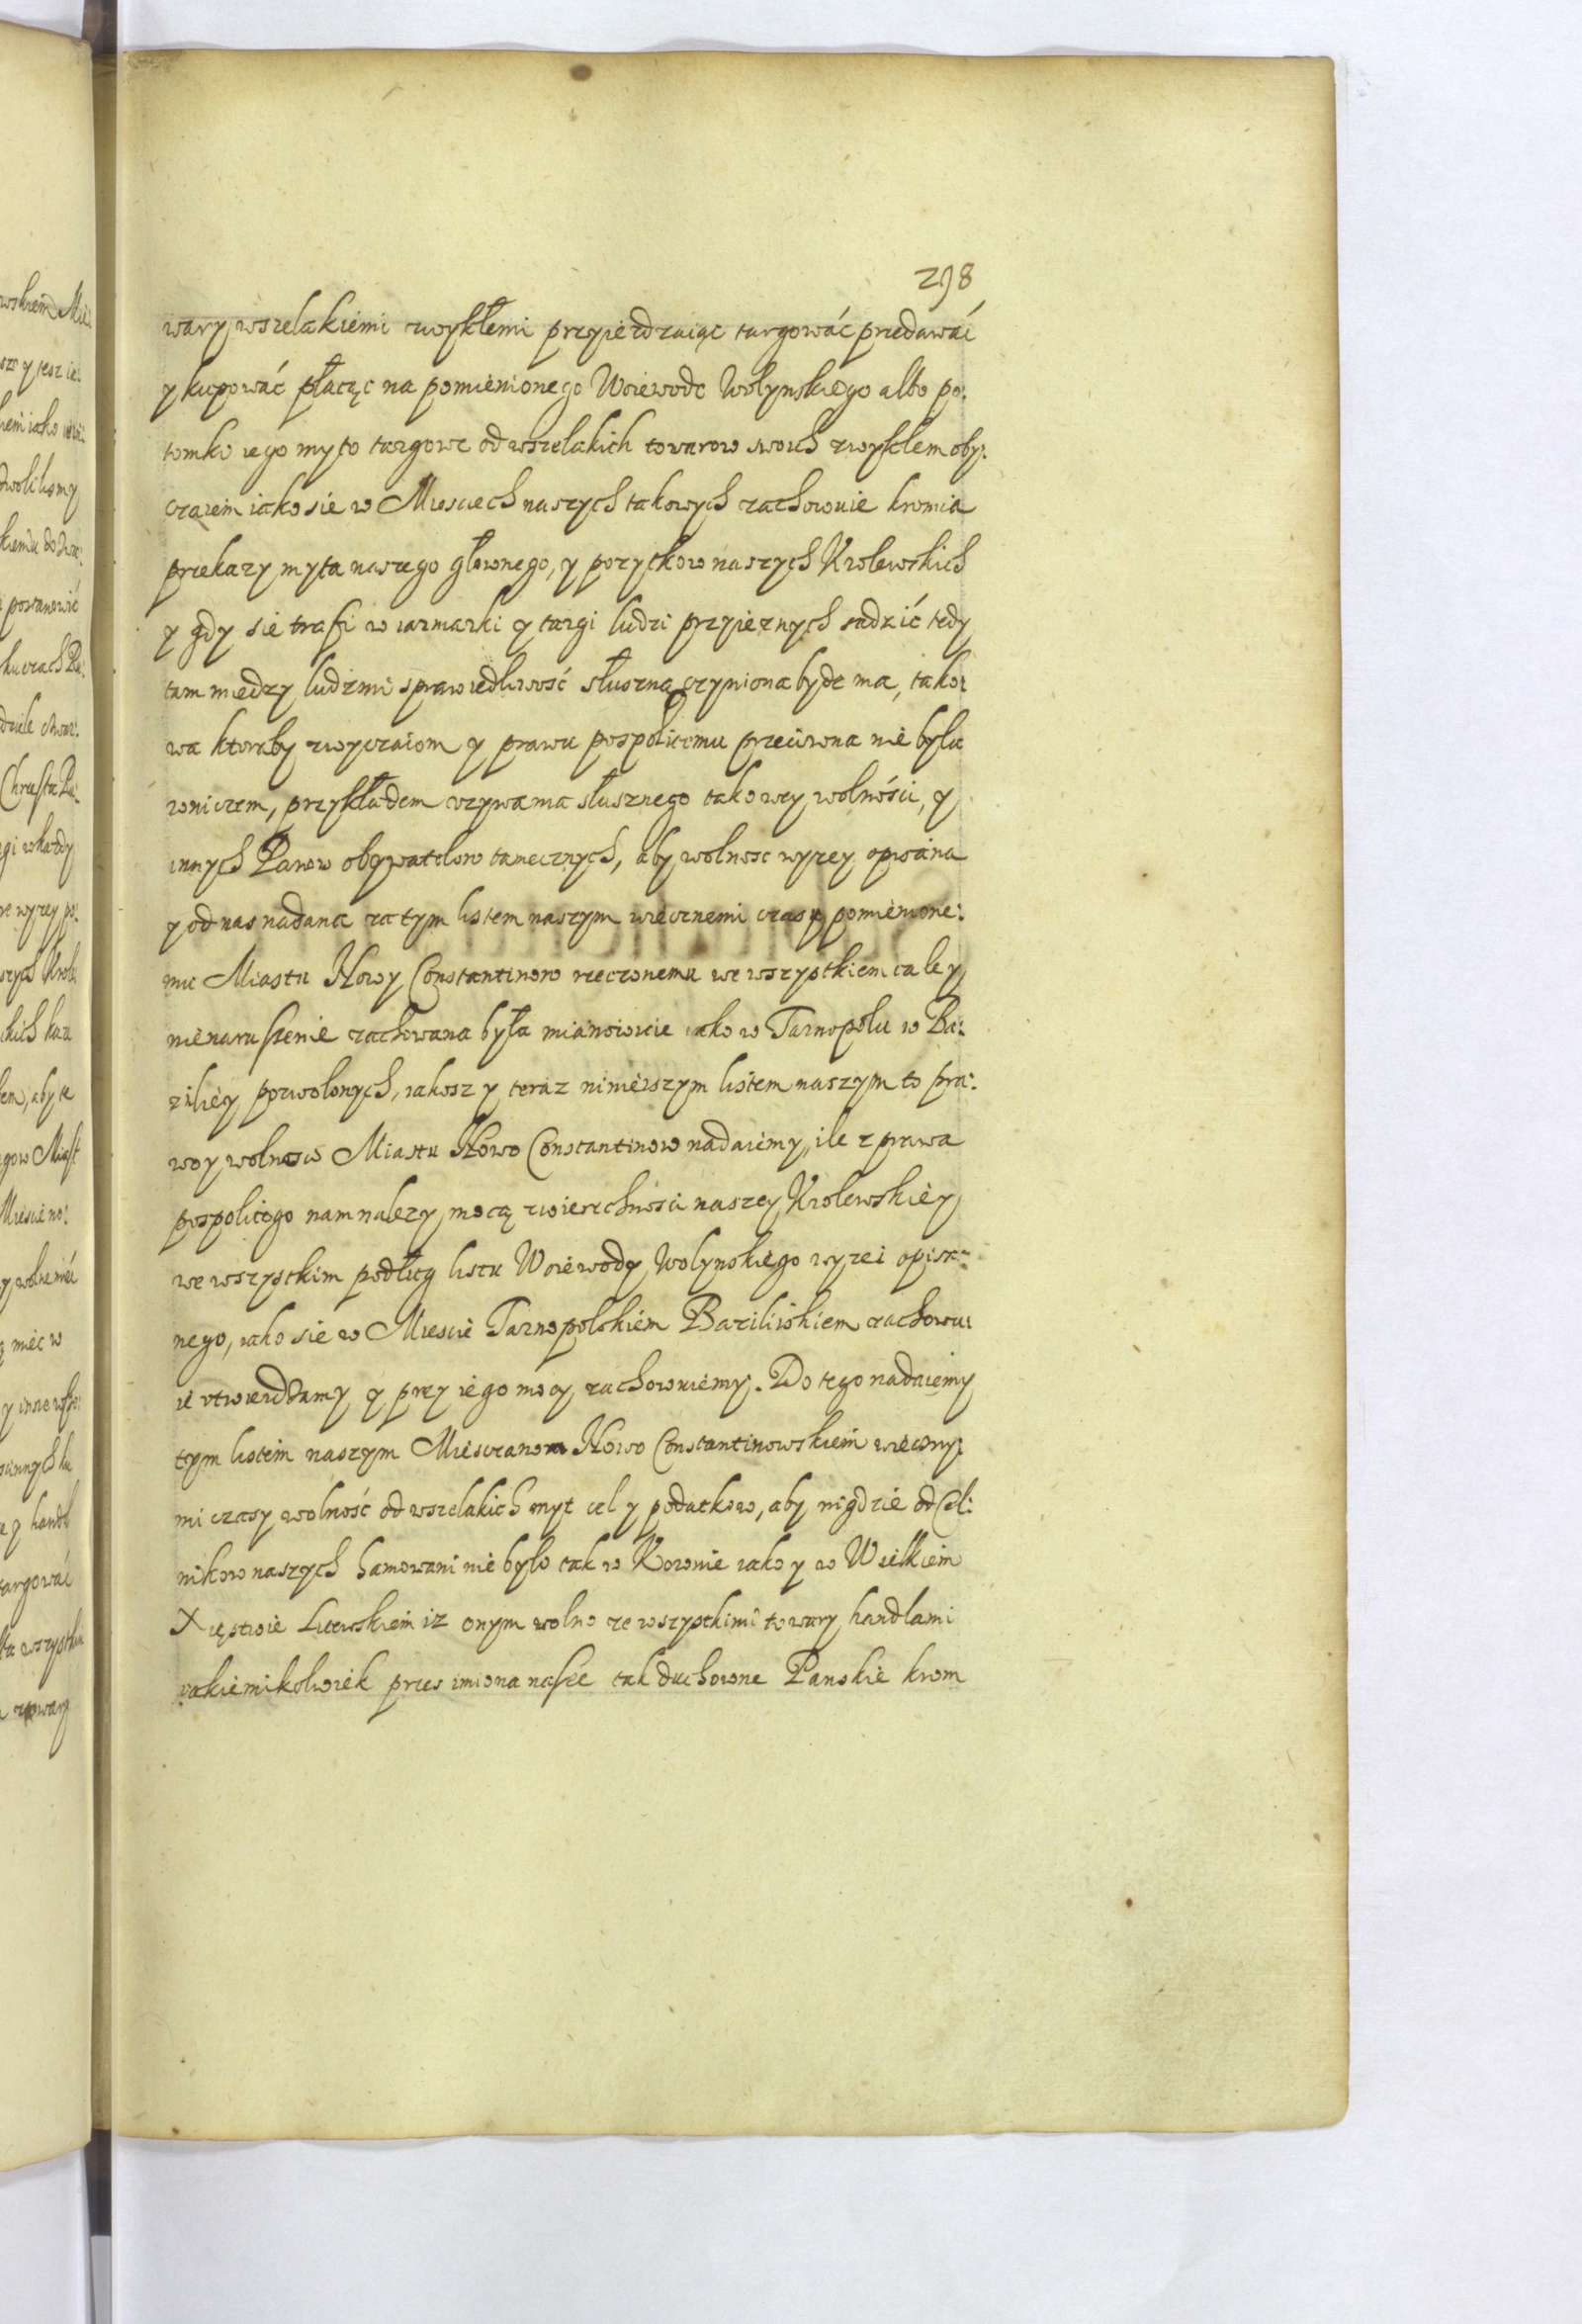 298
wary wszelakiemi zwykłemi przyieżdzaiąc targowáć przedawáć
y kupowáć płacąc na pomienionego Woiewodę Wołynskiego albo po:
tomko iego myto targowe od wszelakich towarow swoich zwykłem oby:
czaiem iako sie w Miesciech naszych takowych zachowuie kromia
przekazy myta naszego głownego, y pozytkow naszych Krolewskich
y gdy sie trafi w iarmarki y targi ludzi przyieznych sadzić tedy
tam miedzy ludzmi sprawiedliwość słuszna czyniona bydz ma, tako:
wa ktoraby zwyczaiom y prawu pospolitemu przeciwna nie była
wniczem, przykładem uzywania słusznego takowey wolnósci, y
innych Panow obywatelow tamecznych, aby wolnosc wyzey opisána
y od nas nadana za tym listem naszym wiecznemi czasy pomienione:
mu Miastu Nowy Constantinow rzeczonemu we wszystkiem cale y
nienaruszenie zachowana była mianowicie iako w Tarnopolu w Ba:
ziliey pozwolonych, iakosz y teraz ninieiszym listem naszym to pra:
wo y wolnosć Miastu Nowo Constantinow nadaiemy, ile z prawa
pospolitego nam nalezy, mocą zwierzchnósci naszey Krolewskiey
we wszystkim podług listu Woiewody Wolynskiego wyzei opisa:
nego, iako sie w Miescie Tarnopolskiem Baziliiskiem zachowu:
ie utwierddamy y przy iego mocy zachowuiemy. Do tego nadaiemy
tym listem naszym Miesczanom Nowo Constantinowskiem wieczny:
mi czasy wolność od wszelakich myt cel y podatkow, aby nigdzie od Cel:
nikow naszych hamowani nie było tak w Koronie iako y w Wielkiem
Xięstwie Litewskiem iz onym wolno ze wszystkimi towary handlami
iakiemikolwiek przez imiona nasze tak duchowne Panskie krom